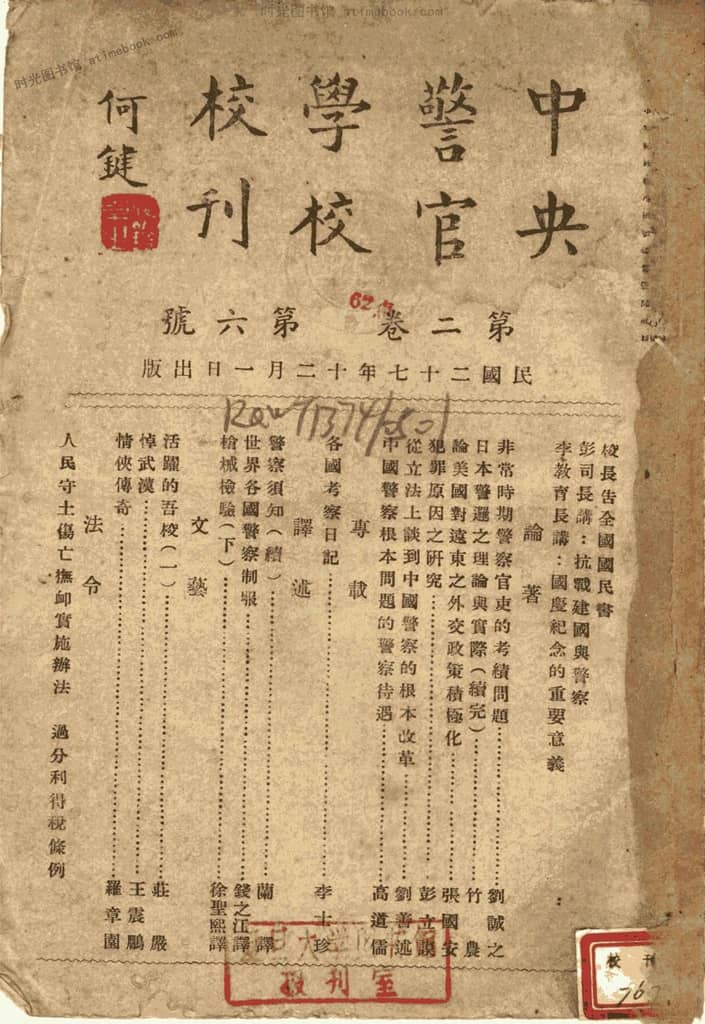 时光图书馆 atimebook.com
时光图书馆 atimebook.com
中央
警官
學校
校刊
何鍵
第二卷 第六號
民國二十七年十二月一日出版
校長告全國國民書
彭司長講:抗戰建國與警察
李教育長講:國慶紀念的重要意義
論著
非常時期警察官吏的考績問題 劉誠之
日本警邏之理論與實際(續完) 竹農
論美國對遠東之外交政策積極化 張國安
犯罪原因之研究 彭立謨
從立法上談到中國警察的根本改革 劉善述
中國警察根本問題的警察待遇 高道儒
專載
各國考察日記 李士珍
譯述
警察須知(續) 蘭譯
世界各國警察制服 錢之江譯
槍械檢驗(下) 徐聖熙譯
文藝
活躍的吾校(一) 莊嚴
悼武漢 王震鵬
情俠傳奇 羅章園
法令
人民守土傷亡撫卹實施辦法 過分利得稅條例
報刊室
校刊